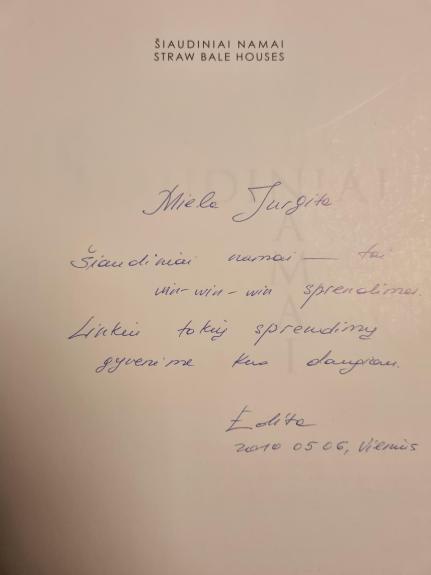 ŠIAUDINIAI NAMAI
STRAW BALE HOUSES
Miela Jurgita
Šiaudiniai namai — tai
win-win-win sprendimai.
Linkiu tokių sprendimų
gyvenime kuo daugiau.
Edita
2010 05 06, Vilnius